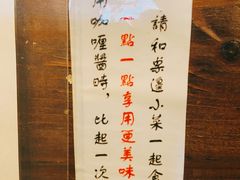 請和桌邊小菜一起食
點一點享用更美味
用咖喱醬時，比起一次